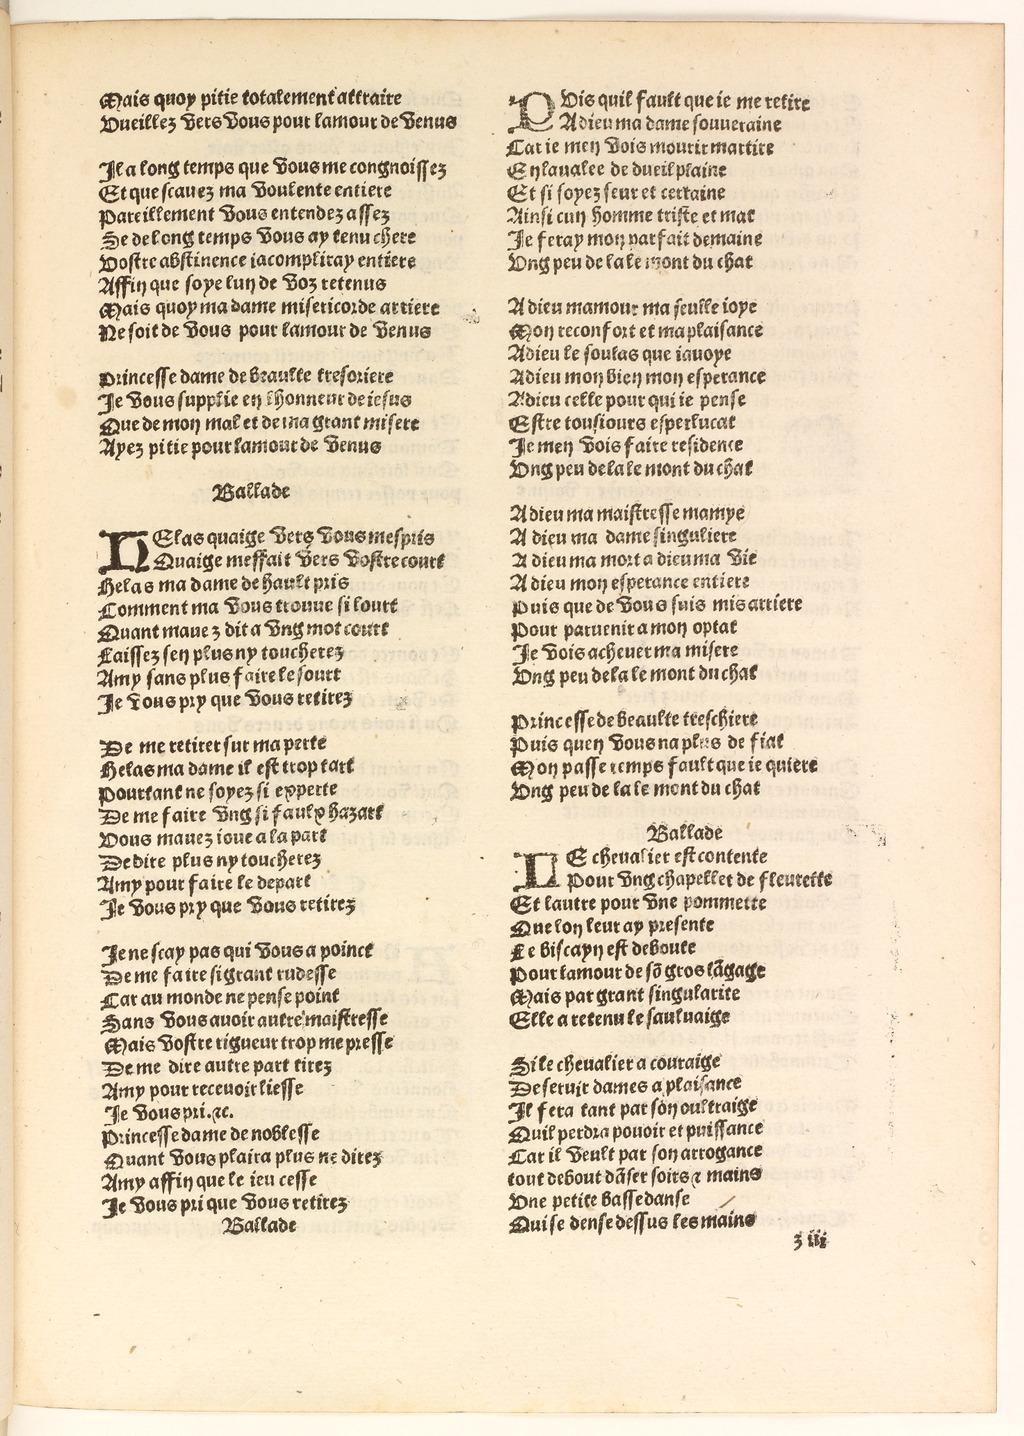 Mais quoy pitie totalement attraire
Vueillez vers vous pour lamour de venus
Il a long temps que vous me congnoissez
Et que scauez ma voulente entiere
Pareillement vous entendez assez
Se de long temps vous ay tenu chere
Vostre abstinence iacompliray entiere
Affin que soye lun de voz retenus
Mais quoy ma dame misericorde arriere
Ne soit de vous pour lamour de venus
Princesse dame de beaulte tresoriere
Je vous supplie en lhonneur de iesus
Que de mon mal et de ma grant misere
Ayez pitie pour lamour de venus
Ballade
HElas quaige vers vous mespris
Quaige meffait vers vostre court
Helas ma dame de hault pris
Comment ma vous trouue si lourt
Quant mauez dit a vng mot court
Laissez sen plus ny toucherez
Amy sans plus faire le sourt
Je vous pry que vous retirez
De me retirer sur ma perte
Helas ma dame il est trop tart
Pourtant ne soyez si experte
De me faire vng si faulx hazart
Vous mauez ioue a la part
De dire plus ny toucherez
Amy pour faire le depart
Je vous pry que vous retirez
Je ne scay pas qui vous a poinct
De me faire si grant rudesse
Car au monde ne pense point
Sans vous auoir autre maistresse
Mais vostre rigueur trop me presse
De me dire autre part tirez
Amy pour receuoir liesse
Je vous pri.⁊c.
Princesse dame de noblesse
Quant vous plaira plus ne direz
Amy affin que le ieu cesse
Je vous pri que vous retirez
Ballade
PVis quil fault que ie me retire
Adieu ma dame souueraine
Car ie men vois mourir martire
En la ualee de dueil plaine
Et si soyez seur et certaine
Ainsi cun homme triste et mat
Je feray mon parfait demaine
Vng peu de la le mont du chat
Adieu mamour ma seulle ioye
Mon reconfort et ma plaisance
Adieu le soulas que iauoye
Adieu mon bien mon esperance
Adieu celle pour qui ie pense
Estre tousiours esperlucat
Je men vois faire residence
Vng peu de la le mont du chat
Adieu ma maistresse mamye
A dieu ma dame singuliere
A dieu ma mort a dieu ma vie
A dieu mon esperance entiere
Puis que de vous suis mis arriere
Pour paruenir a mon optat
Je vois acheuer ma misere
Vng peu de la le mont du chat
Princesse de beaulte treschiere
Puis quen vous na plus de fiat
Mon passe temps fault que ie quiere
Vng peu de la le mont du chat
Ballade
LE cheualier est contente
Pour vng chapellet de fleurette
Et lautre pour vne pommette
Que lon leur ay presente
Le biscayn est deboute
Pour lamour de sō gros lāgage
Mais par grant singularite
Elle a retenu le sauluaige
Si le cheualier a couraige
De seruir dames a plaisance
Il fera tant par son oultraige
Quil perdra pouoir et puissance
Car il veult par son arrogance
tout debout dāser soirs ⁊ mains
Vne petite basse danse
Qui se dense dessus les mains
z iii